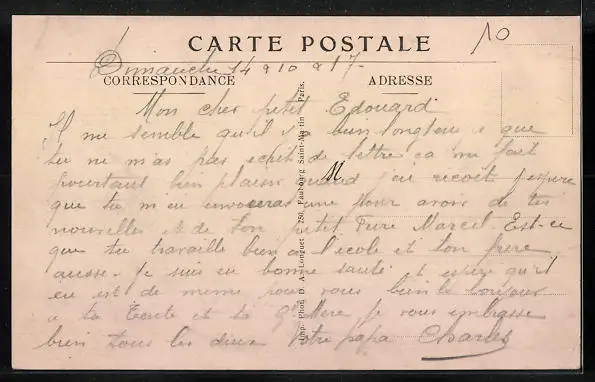 10
CARTE POSTALE
Dimanche 14 a 10 a 17-
CORRESPONDANCE
ADRESSE
Mon cher petit Edouard.
Il me semble qu'il y a bien longtems que
tu ne m'as pas ecrit de lettre ca me fait
pourtant bien plaisir quand j'en recoit j'espere
que tu m'en envoueras une pour avoir de tes
nouvelles et de ton petit Frere Marcel. Est-ce
que tu travaille bien a l'ecole et ton frere
aussi. Je suis en bonne santé et espere qu'il
en est de meme pour vous bien le bonjour
a ta Tante et ta Gd Mere je vous embrasse
bien tous les deux Votre papa Charles
M
Imp. Phot. D. A. Longuet 250, Faubourg Saint-Martin Paris.